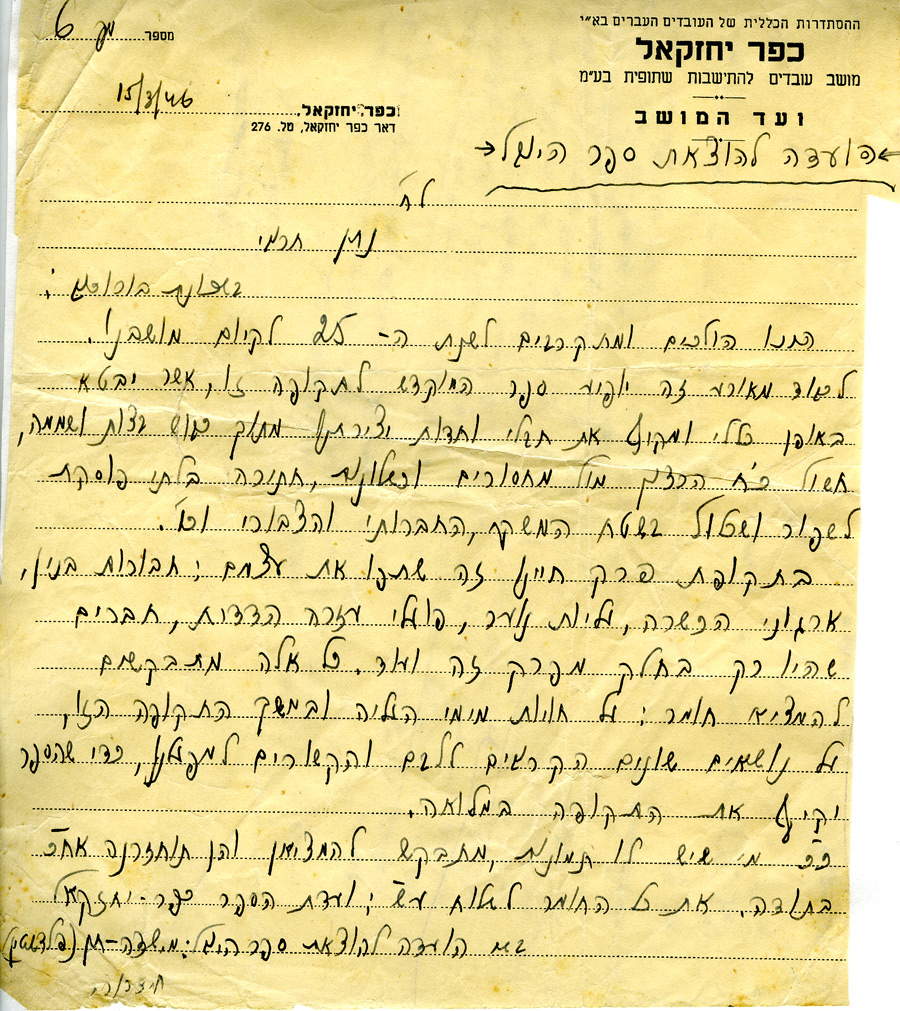 ההסתדרות הכללית של העובדים העברים בא"י
כפר יחזקאל
מושב עובדים להתישבות שתופית בע"מ
ועד המושב
מספר 6
15/3/46
כפר יחזקאל,
דאר כפר יחזקאל, טל. 276
הועדה להוצאת ספר היובל
לח'
נתן חרמי
בשכונת בורוכוב ;
הננו הולכים ומתקרבים לשנת ה- 25 לקיום מושבנו.
לכבוד מאורע זה יופיע ספר המוקדש לתקופה זו, אשר יבטא
באופן כללי ומקיף את חבלי וחדות יצירתנו מתוך כבוש בצות ושממה,
חשול כח הרצון מול מחסורים וכשלונות, חתירה בלתי פוסקת
לשפור ושכלול בשטח המשקי, החברותי והצבורי וכו'.
בתקופת פרק חיינו זה שתפו את עצמם ; חבורות בנין,
ארגוני הכשרה, עליות נוער, פועלי עזרה הדדית, חברים
שהיו רק בחלק מפרק זה ועוד. כל אלה מתבקשים
להמציא חומר ; על חויות מימי העליה ובמשך התקופה הזו,
על נושאים שונים הקרובים ללבם והקשורים למפעלנו, כדי שהספר
יקיף את התקופה במלואה.
כ"כ מי שיש לו תמונות, מתבקש להמציאן והן תוחזרנה אח"כ
בתודה. את כל החומר לשלוח ע"ש ; ועדת הספר כפר-יחזקאל
בשם הועדה להוצאת ספר היובל: